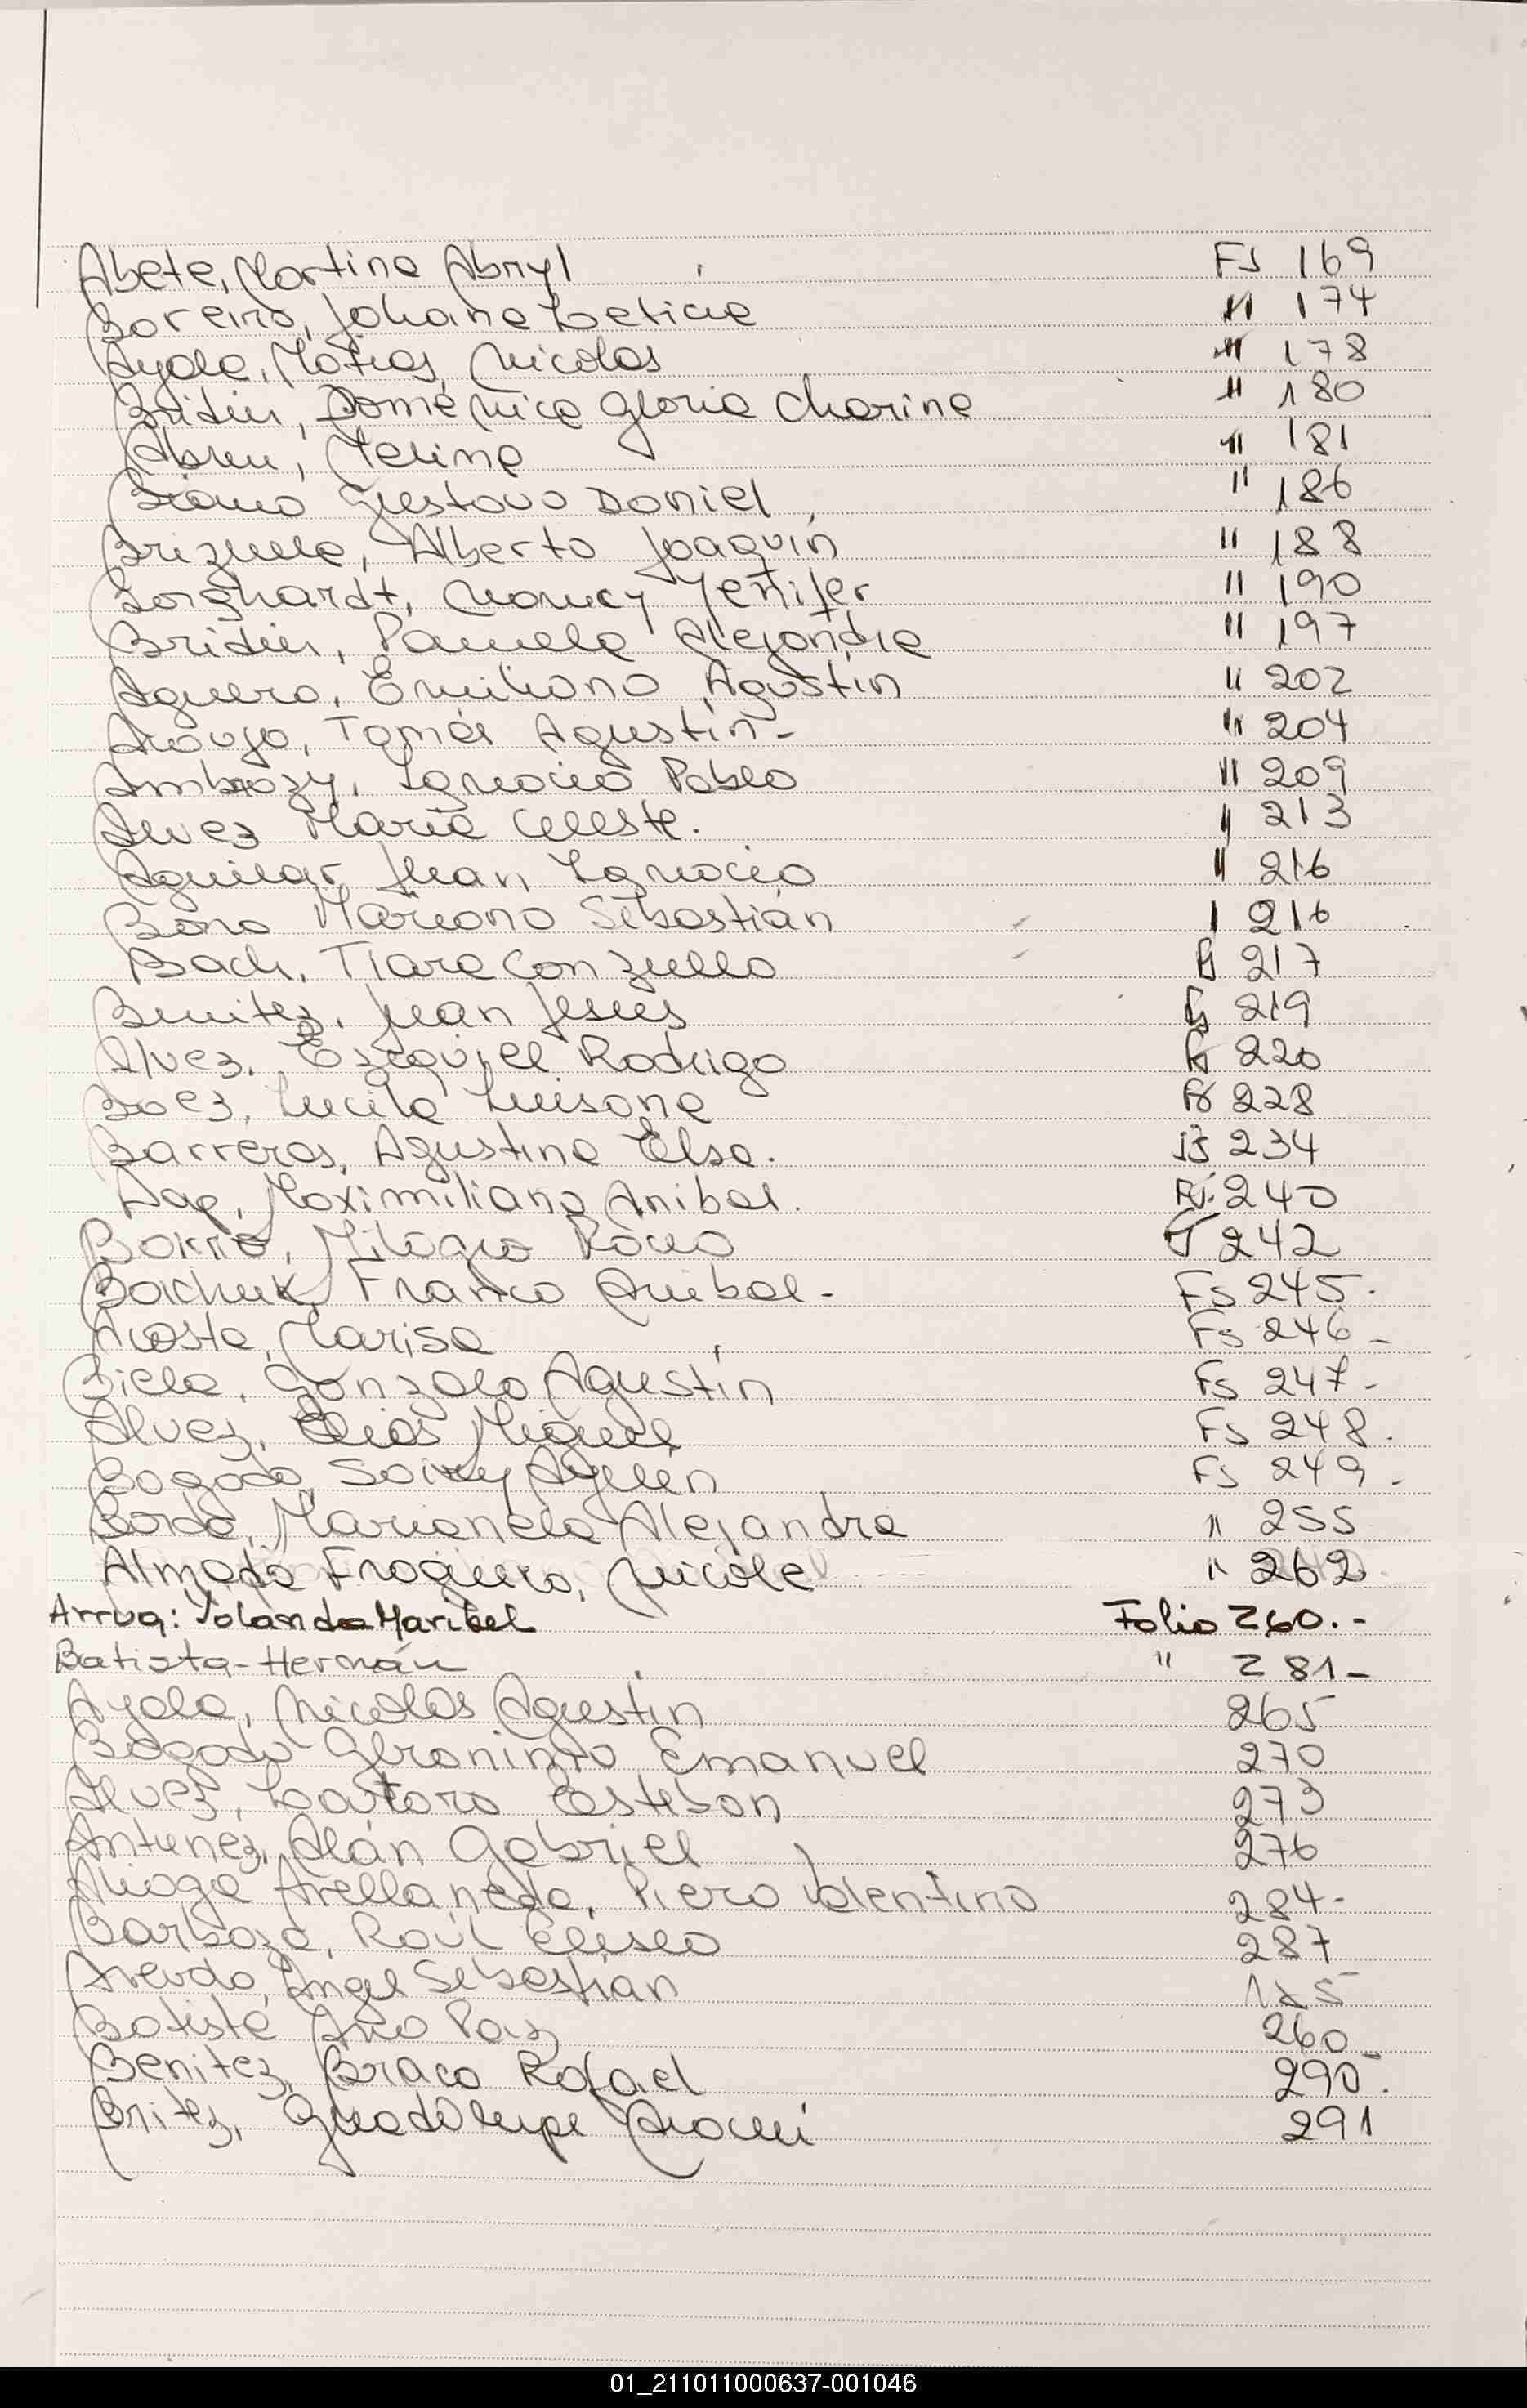 Abete, Martina Abryl Fs 169
Boreiro, Johana Leticia " 174
Ayala, Matias Nicolas " 178
Bridier, Doménica Gloria Charine " 180
Abreu, Melina " 181
Gustavo Daniel " 186
Brizuela, Alberto Joaquín " 188
Borghardt, Nancy Yennifer " 190
Bridier, Pamela Alejandra " 197
Aguero, Emiliano Agustín " 202
Araujo, Tomás Agustín- " 204
Ambrozy, Ignacio Pablo " 209
Alvez María Celeste. " 213
Aguilar, Juan Ignacio " 216
Mariano Sebastián 216
Bach, Tiara Conzuello 217
Benitez, Juan Jesús Fs 219
Alvez, Ezequiel Rodrigo Fs 220
Baez, Lucila Luisana Fs 228
Barreras, Agustina Elsa. Fs 234
Maximiliano Anibal. Fs. 240
Milagro Rocio 242
Franco Anibal - Fs 245.
Acosta, Marisa Fs 246 -
Biela, Gonzalo Agustín Fs 247 -
Alvez, Elias Miguel Fs 248.
Bogado, Ayelén Fs 249 -
Borda, Marianela Alejandra " 255
Almada Froguero, Nicole " 262
Arrua: Yolanda Maribel Folio 260.-
Batista-Hernán " 281-
Ayala, Nicolás Agustín 265
Bogado Geronimo Emanuel 270
Alvez, Lautaro Esteban 273
Antunez, Alán Gabriel 276
Aliaga Avellaneda, Piero Valentino 284-
Barboza, Raúl Eliseo 287
Angel Sebastián
Batista Paz 260
Benitez, Rafael 290.
Britez, Guadalupe Anahi 291
01_211011000637-001046